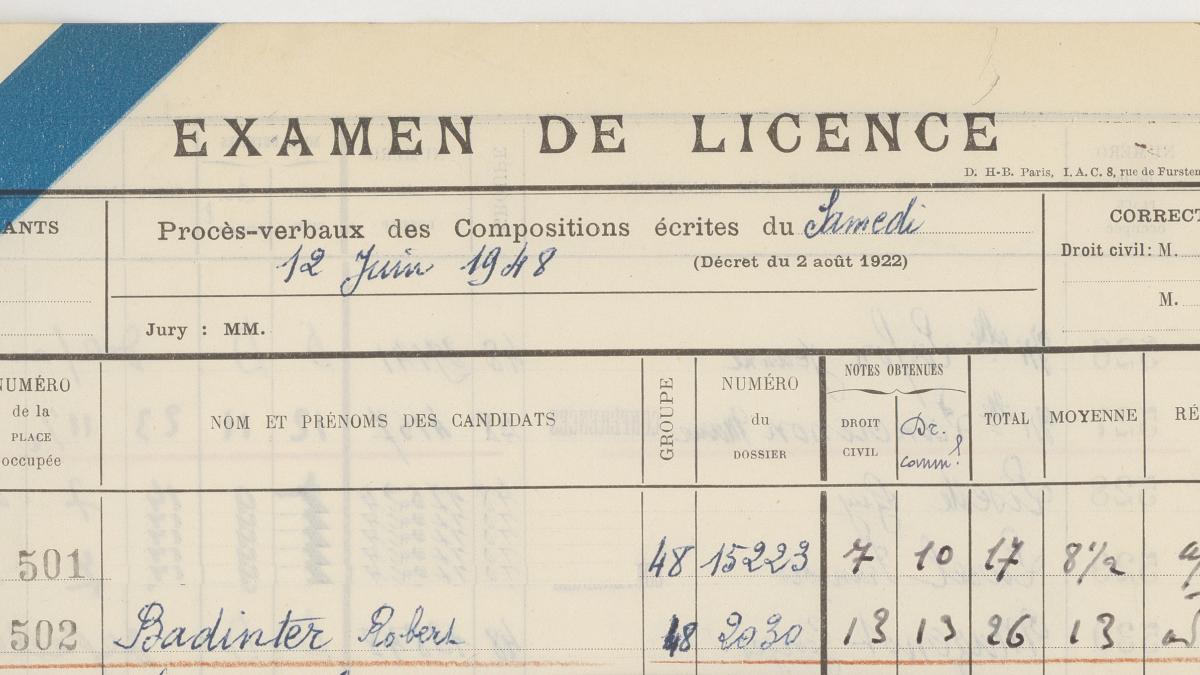 EXAMEN DE LICENCE
D. H-B. Paris, I. A. C. 8, rue de Fursten
ANTS
Procès-verbaux des Compositions écrites du Samedi
12 Juin 1948
(Décret du 2 août 1922)
Jury : MM.
CORRECT
Droit civil : M.
M.
NUMÉRO
de la
PLACE
occupée
NOM ET PRÉNOMS DES CANDIDATS
GROUPE
NUMÉRO
du
DOSSIER
NOTES OBTENUES
DROIT
CIVIL
Dr.
comm!
TOTAL
MOYENNE
RÉ
501 48 15223 7 10 17 8 1/2
502 Badinter Robert 48 2030 13 13 26 13